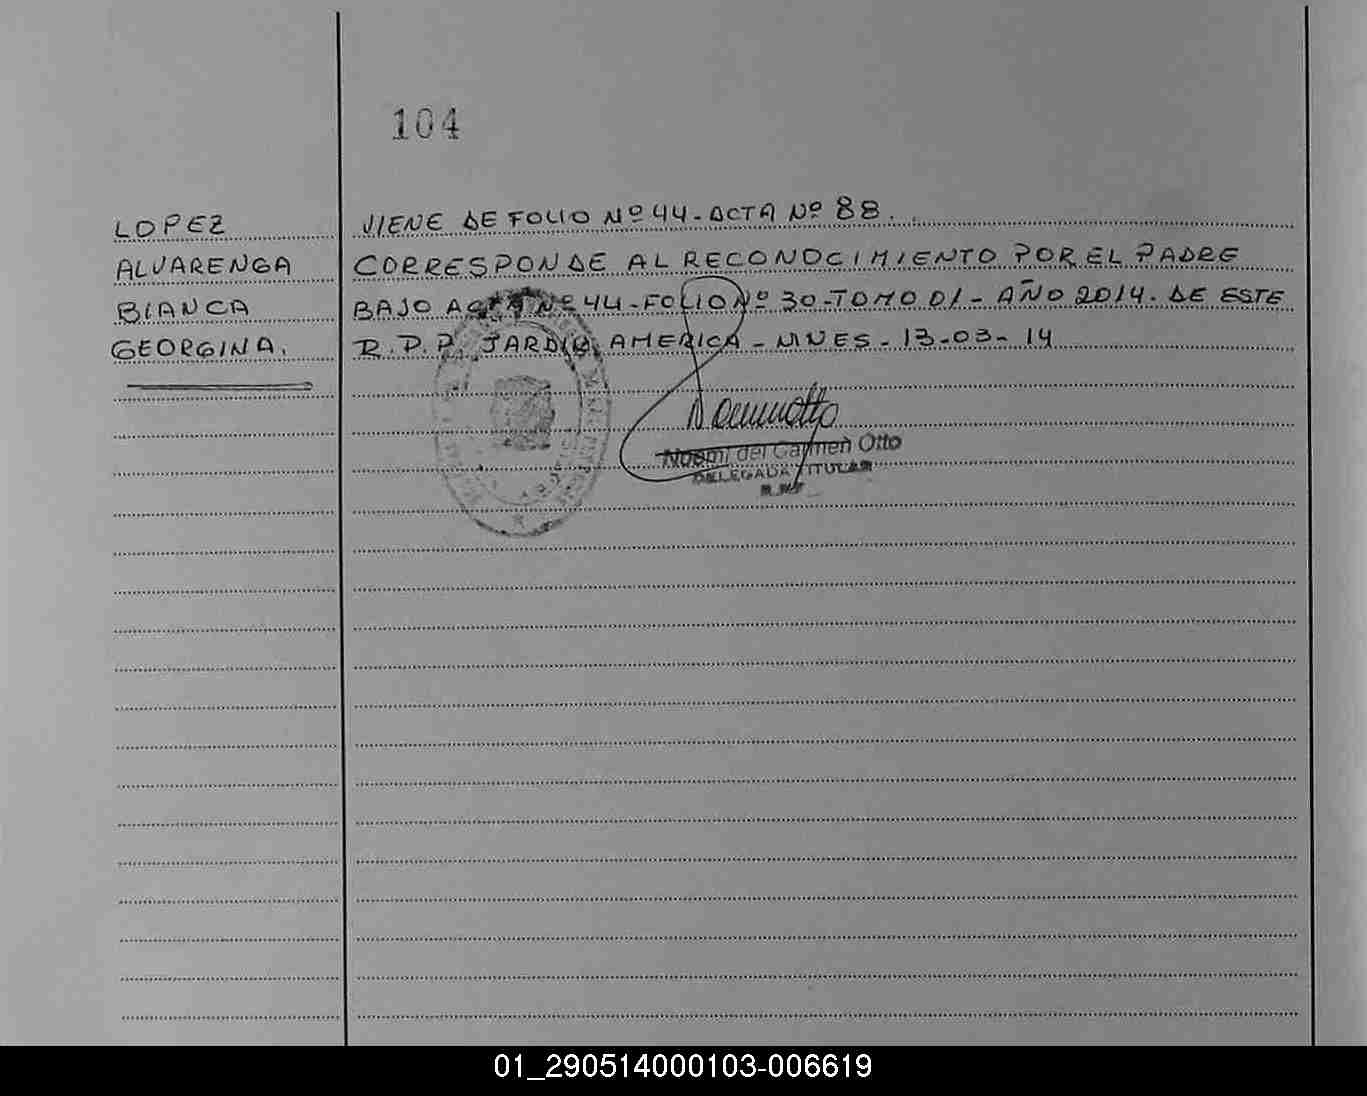 104
LOPEZ
ALVARENGA
BIANCA
GEORGINA.
VIENE DE FOLIO Nº 44-ACTA Nº 88.
CORRESPONDE AL RECONOCIMIENTO POR EL PADRE
BAJO ACTA Nº 44-FOLIO Nº 30-TOMO 01- AÑO 2014. DE ESTE
R.P.P. JARDIN AMERICA - MNES - 13-03-14
Noemi del Carmen Otto
DELEGADA TITULAR
01_290514000103-006619